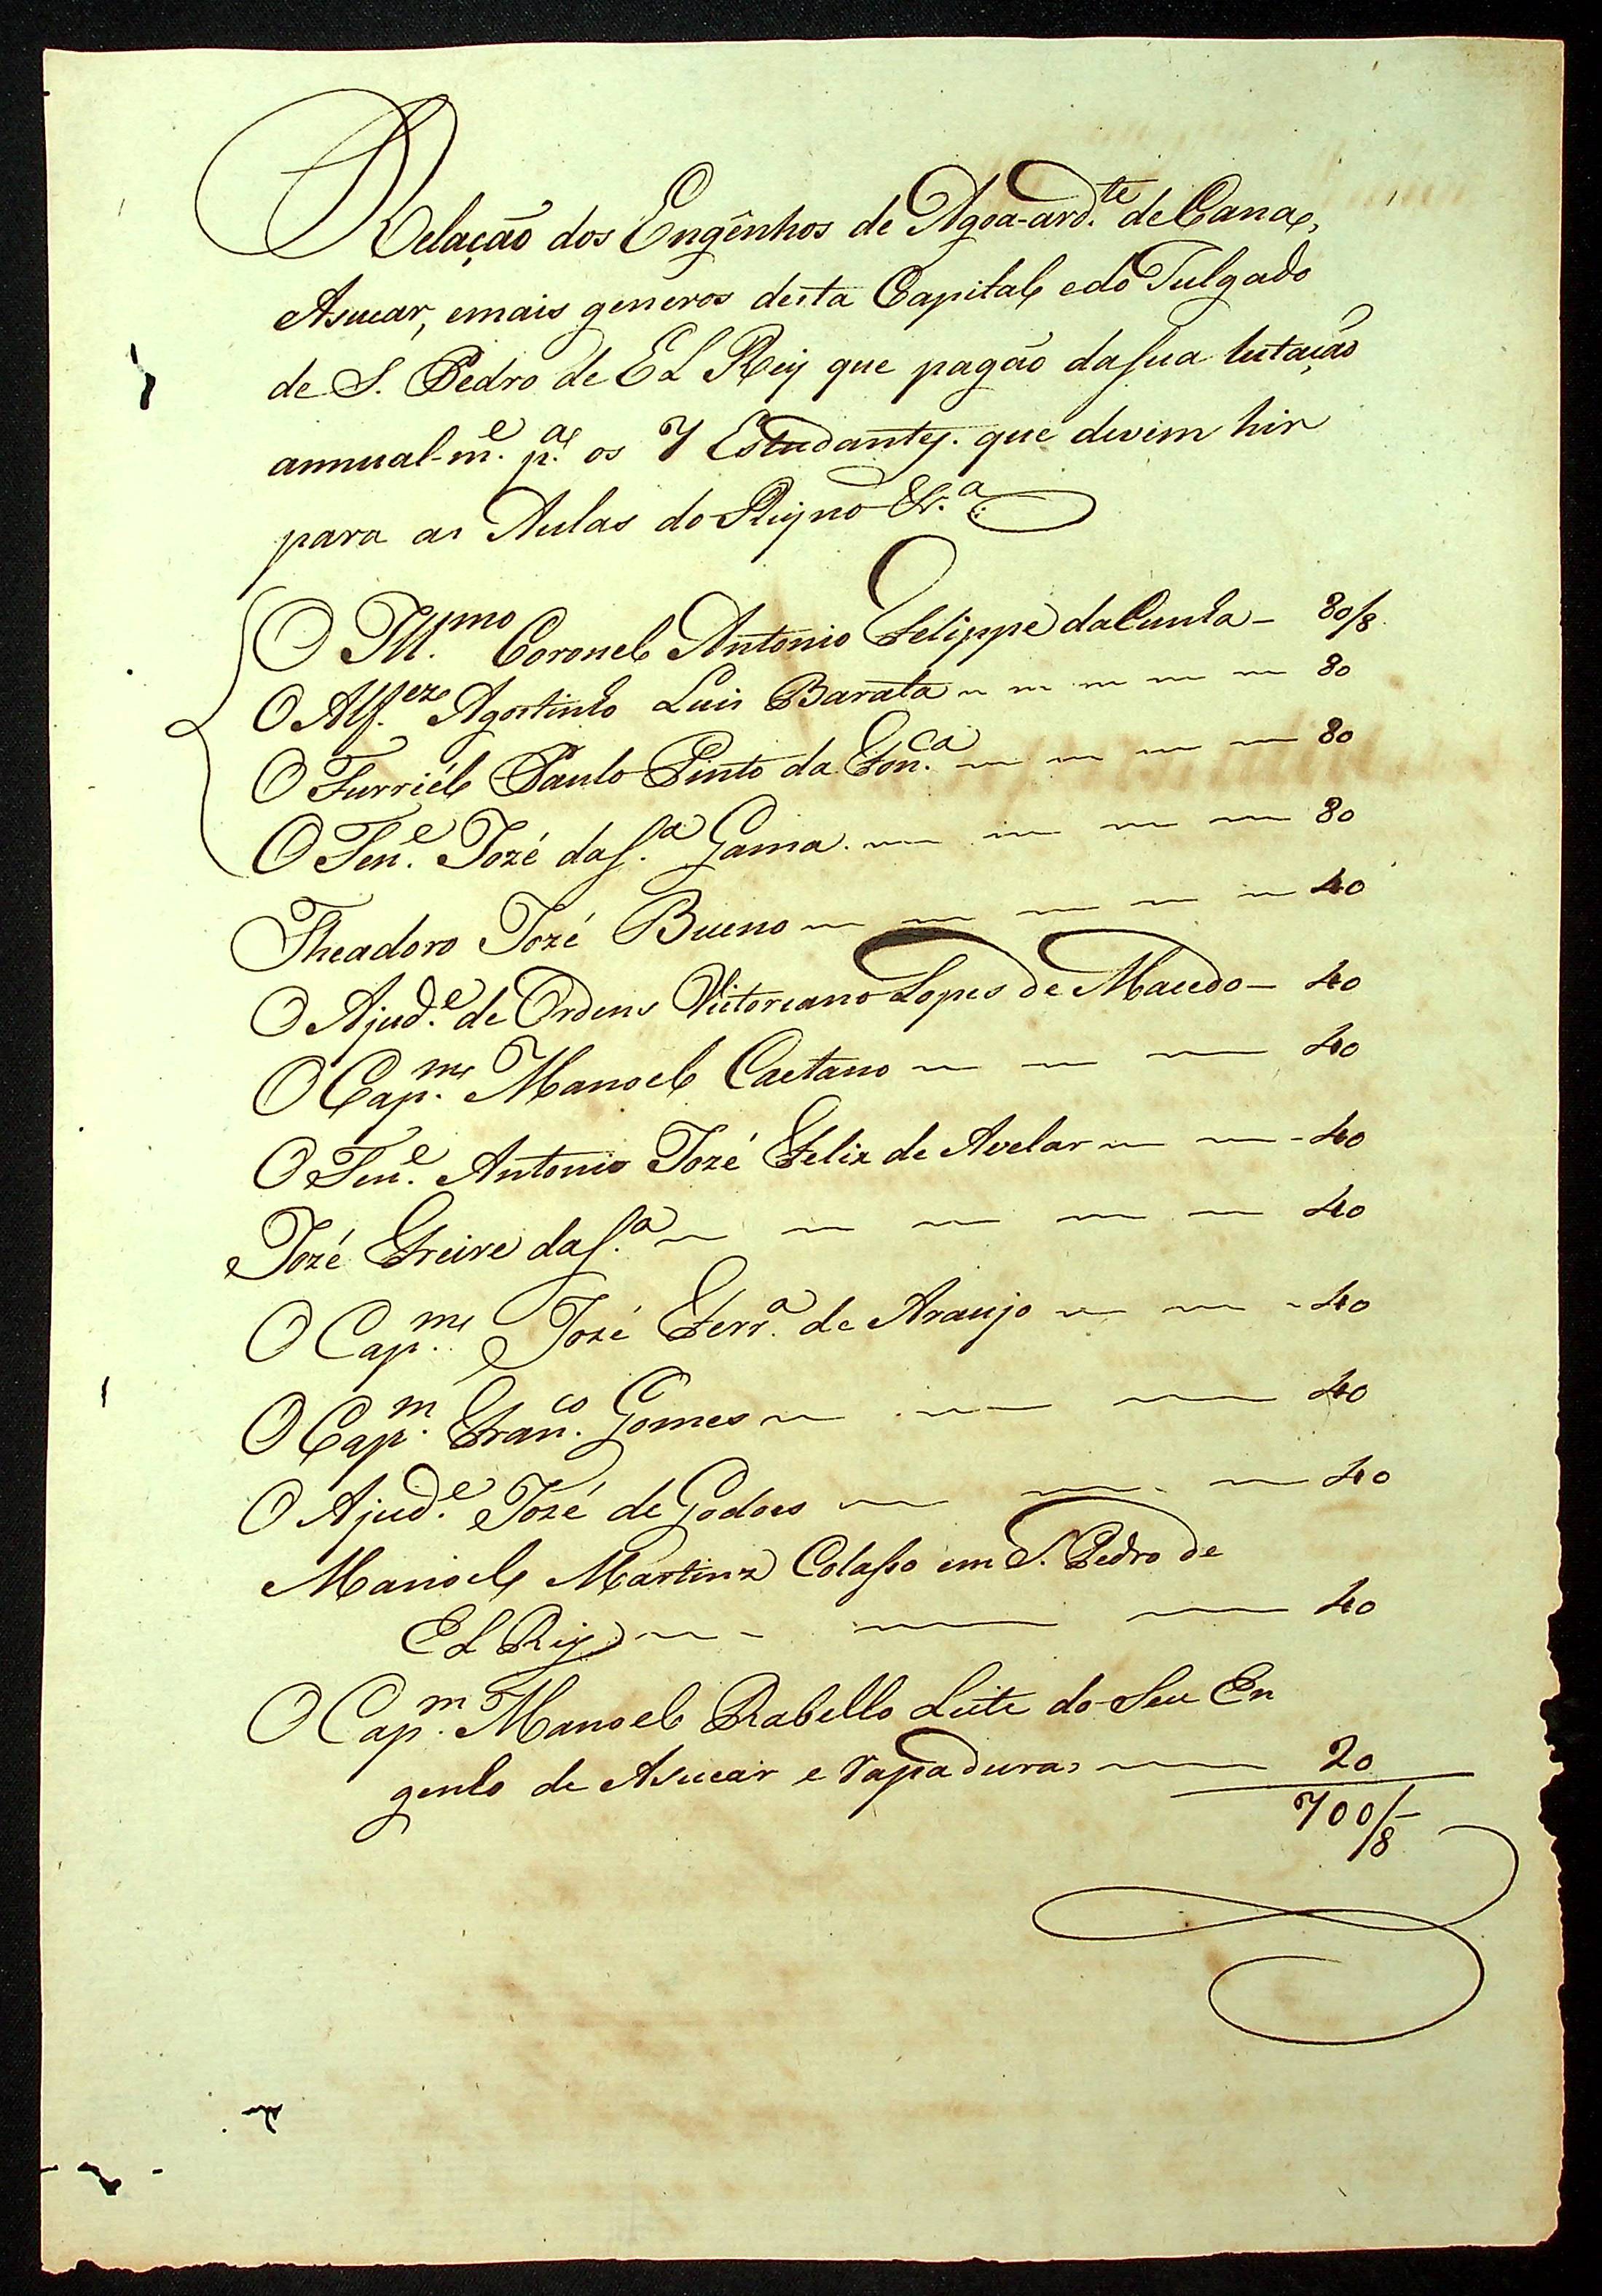 Relação dos Engênhos de Agoa-ard.te de Cana,
Asucar, emais generos desta Capital edo Julgado
de S. Pedro de EL Rey que pagão dasua lutação
annual-m.e p.a os 7 Estudantes. que devem hir
para as Aulas do Reyno &.a
O Ill.mo Coronel Antonio Felippe da Cunha - 80/8
O Alf.ez Agostinho Luis Barata 80
O Furriél Paulo Pinto da Fon.ca 80
O Ten.e Jozé da S.a Gama 80
Theadoro Jozé Bueno 40
O Ajud.e de Ordens Victoriano Lopes de Macedo - 40
O Cap.m Manoel Caetano 40
O Ten.e Antonio Jozé Felix de Avelar 40
Jozé Freire da S.a 40
O Cap.m Jozé Ferr.a de Araujo 40
O Cap.m Fran.co Gomes 40
O Ajud.e Jozé de Godoes 40
Manoel Martinz Colasso em S. Pedro de
EL Rey 40
O Cap.m Manoel Rabello Leite do Seu En
genho de Asucar e rapaduras 20
700/8